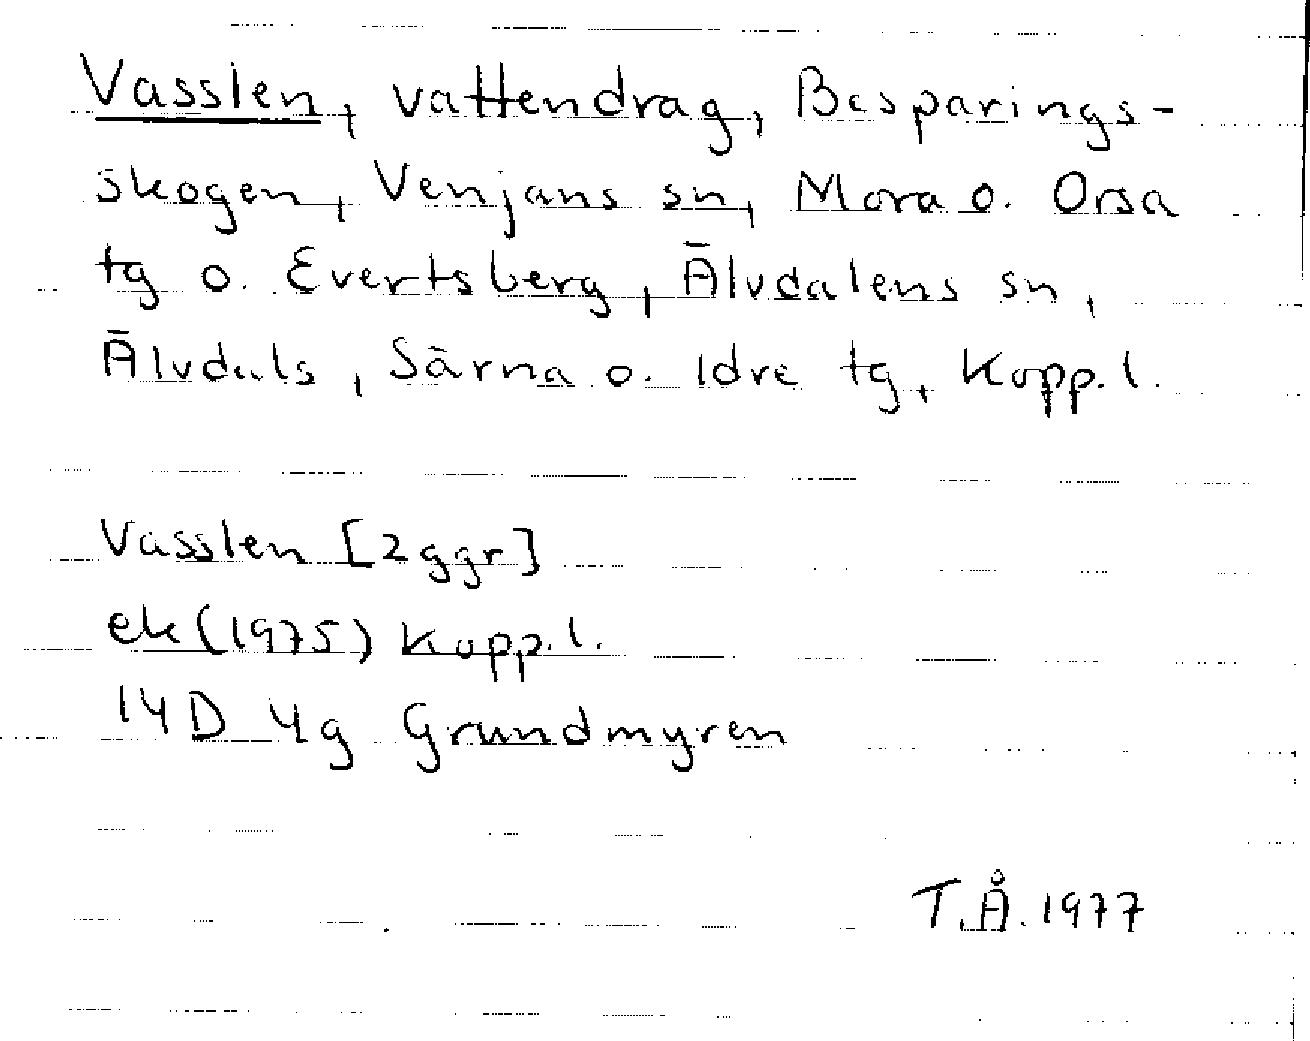 Vasslen, vattendrag, Besparings-
skogen, Venjans sn, Mora o. Orsa
tg o. Evertsberg, Älvdalens sn,
Älvdals, Särna o. Idre tg, Kopp. l.
Vasslen [2 ggr]
ek (1975) Kopp. l.
14D 4g Grundmyren
T.Å. 1977